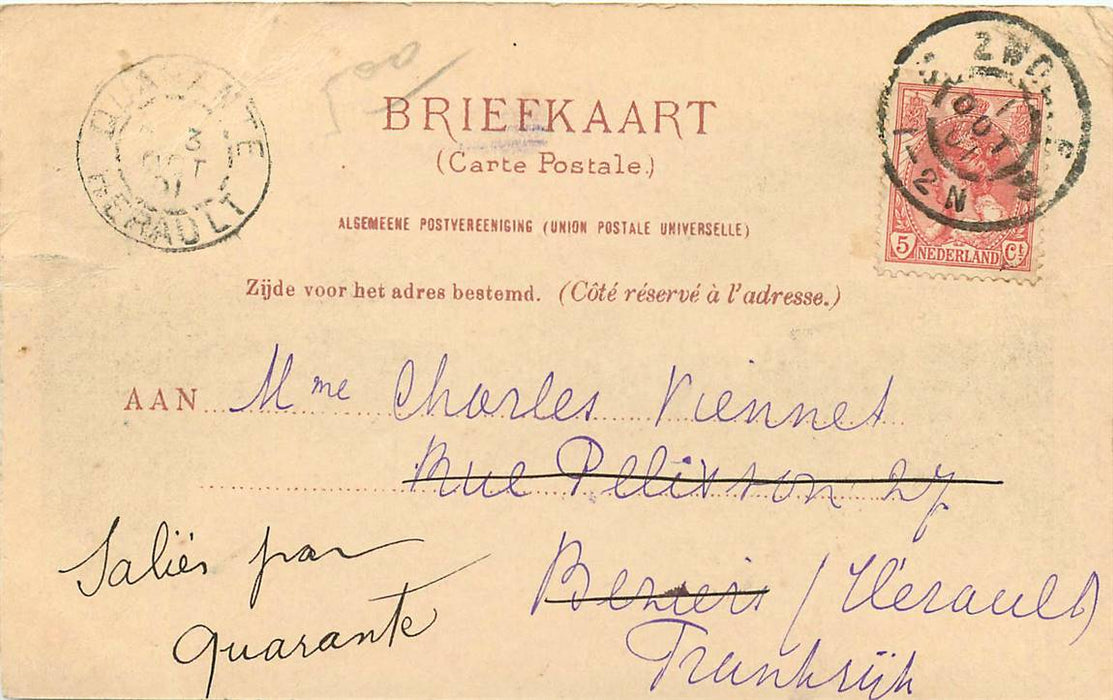 QUARANTE
3
OCT
07
HERAULT
BRIEFKAART
(Carte Postale.)
ALGEMEENE POSTVEREENIGING (UNION POSTALE UNIVERSELLE)
Zijde voor het adres bestemd. (Côté réservé à l'adresse.)
ZWOLLE
1
OCT
07
1-2N
5 NEDERLAND Ct
AAN Mme Charles Viennet
Rue Pelisson 27
Beziers / Hérault
Frankrijk
Saliès par
quarante